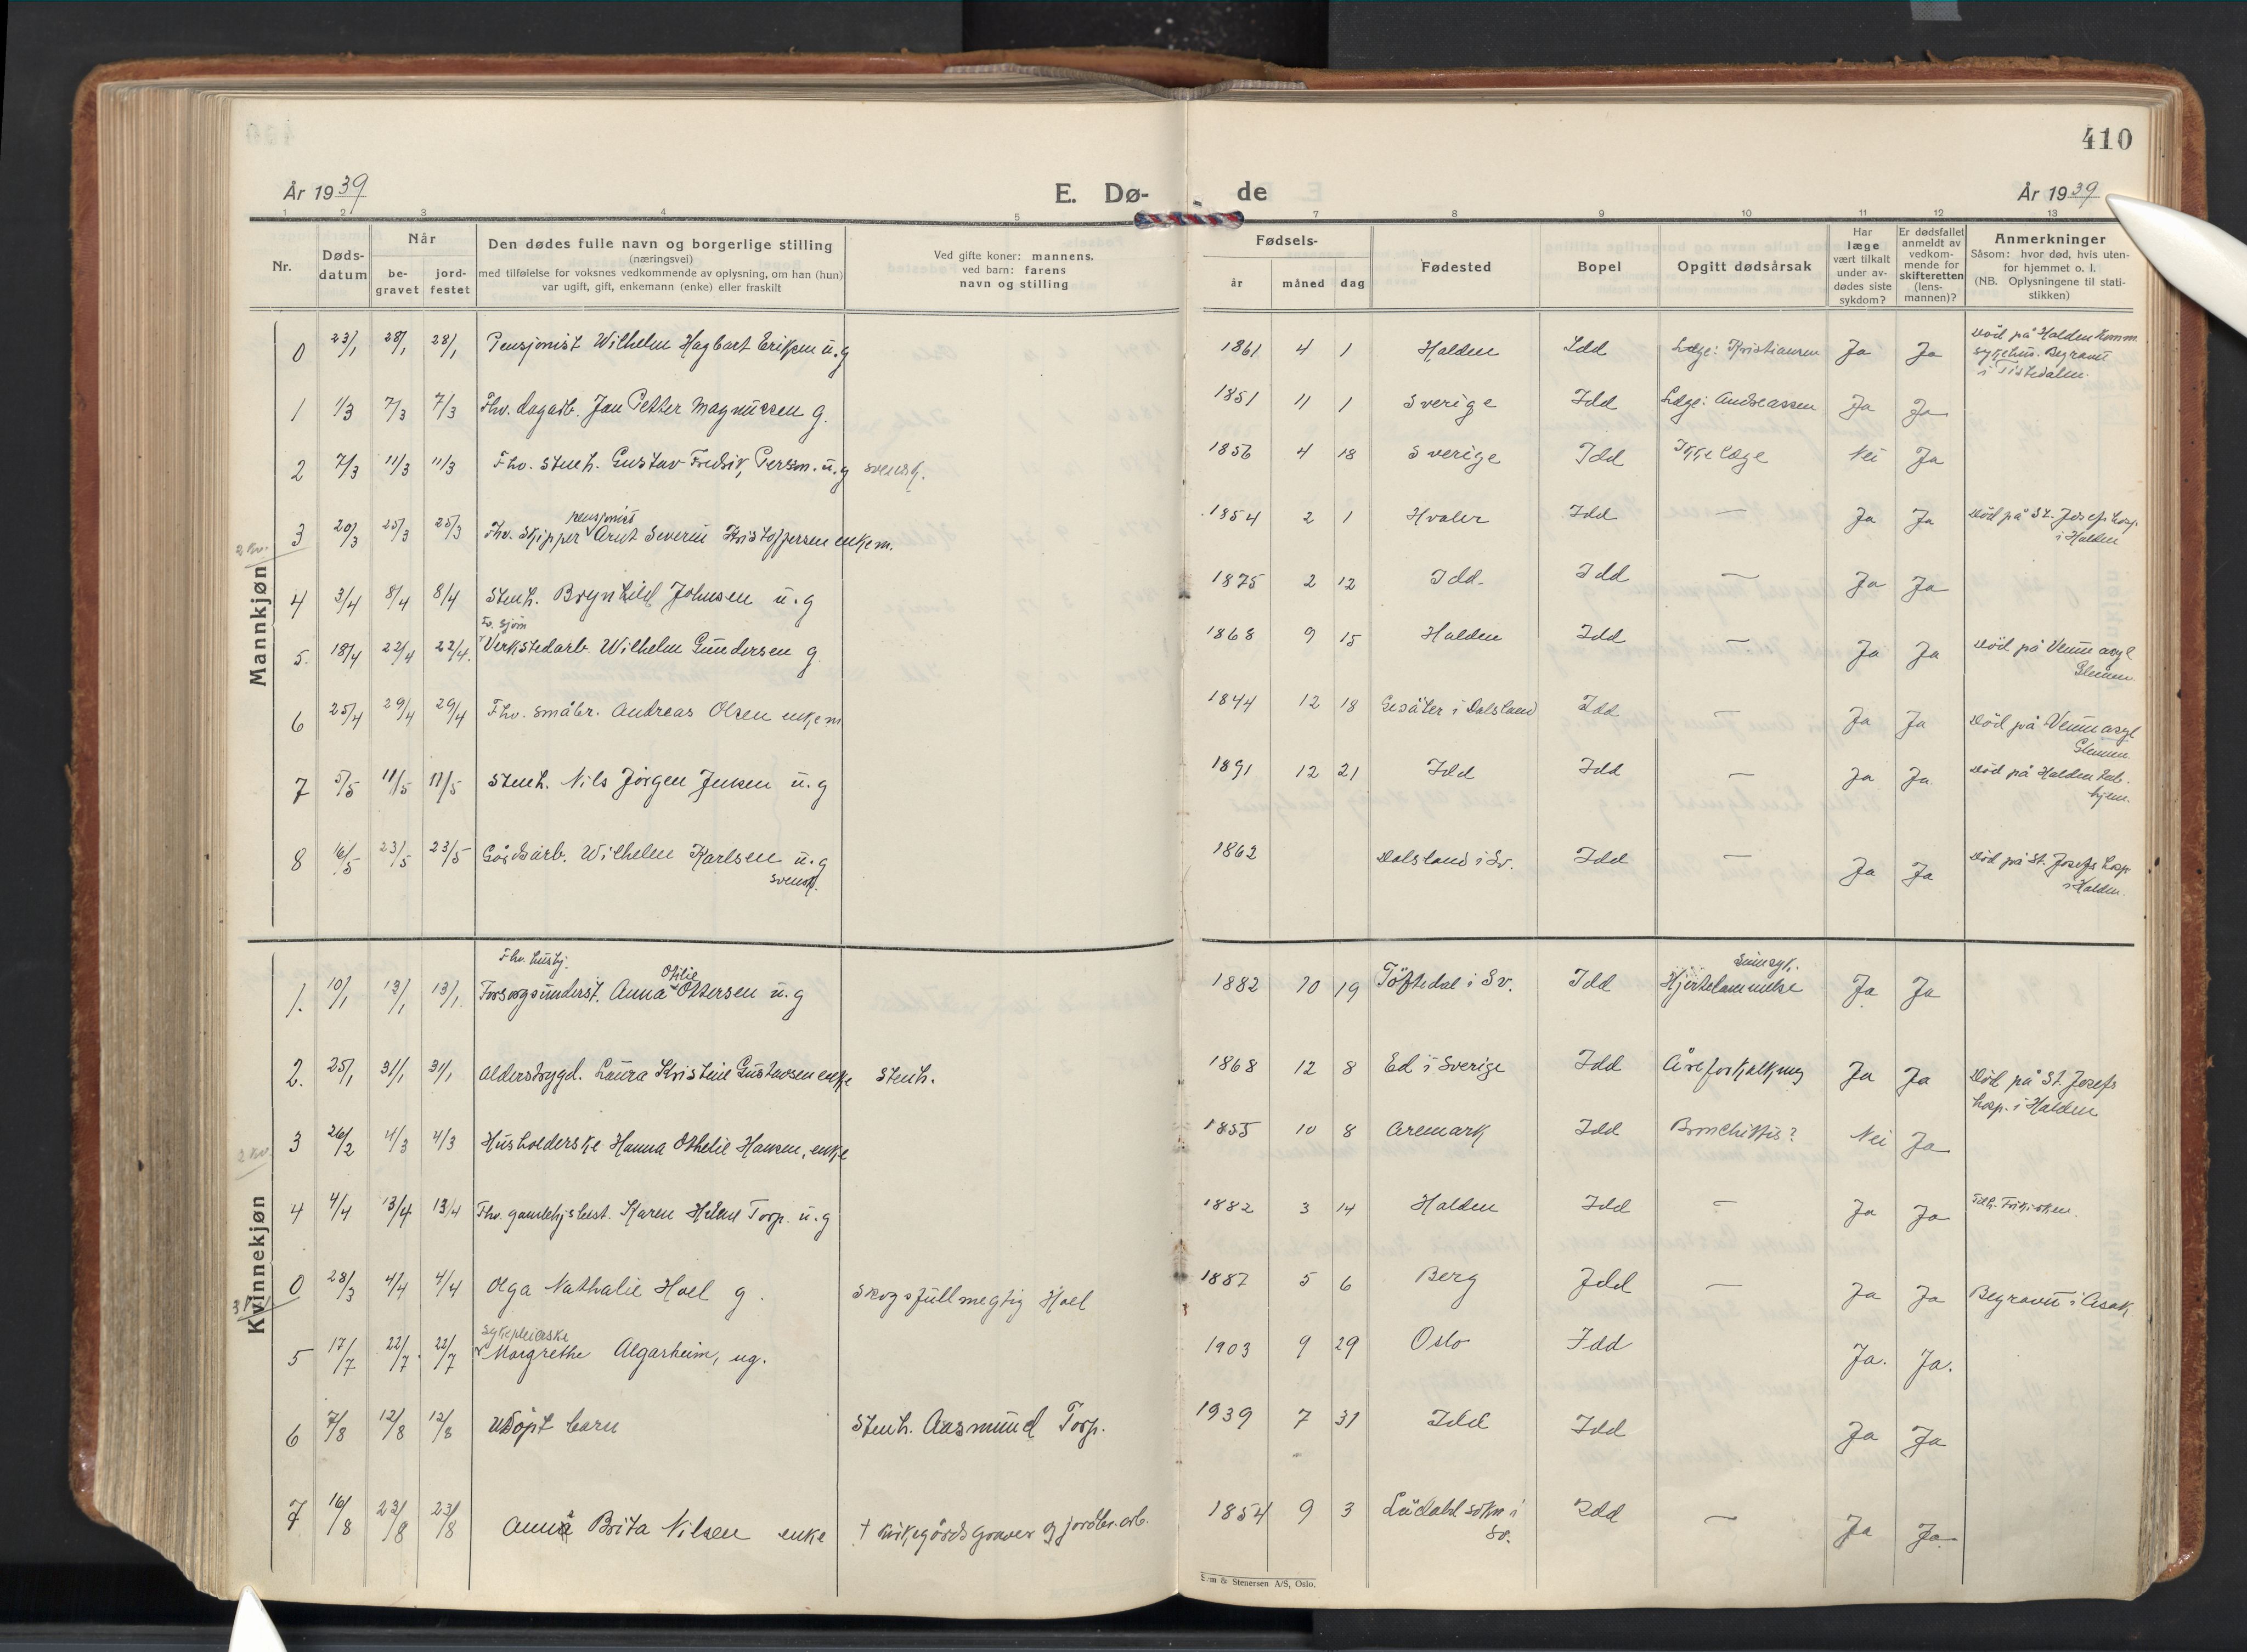 410
År 1939
E. Dø-
de
År 1939
1 2 3 4 5 7 8 9 10 11 12 13
Nr.
Døds-
datum
Når
be-
gravet
jord-
festet
Den dødes fulle navn og borgerlige stilling
(næringsvei)
med tilføielse for voksnes vedkommende av oplysning, om han (hun)
var ugift, gift, enkemann (enke) eller fraskilt
Ved gifte koner: mannens.
ved barn: farens
navn og stilling
Fødsels-
år måned dag
Fødested
Bopel
Opgitt dødsårsak
Har
læge
vært tilkalt
under av-
dødes siste
sykdom?
Er dødsfallet
anmeldt av
vedkom-
mende for
skifteretten
(lens-
mannen)?
Anmerkninger
Såsom: hvor død, hvis uten-
for hjemmet o. l.
(NB. Oplysningene til stati-
stikken)
Mannkjøn
0 23/1 28/1 28/1 Pensjonist Wilhelm Hagbart Eriksen u.g 1861 4 1 Halden Idd Læge: Kristiansen Ja Ja Död på Halden Komm.
sykehus. Begravet
i Tistedalen.
1 1/3 7/3 7/3 Fhv. dagarb. Jan Petter Magnussen g. 1851 11 1 Sverige Idd Læge: Andreassen Ja Ja
2 7/3 11/3 11/3 Fhv. stenh. Gustav Fredrik Persson. u.g svensk. 1856 4 18 Sverige Idd Ikke læge Nei Ja
2 kv.
pensjonist
3 20/3 25/3 25/3 Fhv. skipper Arnt Severin Kristoffersen enkem. 1854 2 1 Hvaler Idd — Ja Ja Död på St. Josefs hosp.
i Halden
4 3/4 8/4 8/4 Stenh. Brynhild Johnsen u.g 1875 2 12 Idd. Idd — Ja Ja
Fv. sjöm
5. 18/4 22/4 22/4. Verkstedarb. Wilhelm Gundersen g. 1868 9 15 Halden Idd — Ja Ja Död på Veum asyl
Glemmen
6 25/4 29/4 29/4 Fhv. småbr. Andreas Olsen enkem 1844 12 18 Gesäter i Dalsland Idd — Ja Ja Död på Veum asyl
Glemmen
7 5/5 11/5 11/5 Stenh. Nils Jörgen Jensen u.g 1891 12 21 Idd Idd — Ja Ja Död på Halden tub.
hjem.
8 16/5 23/5 23/5 Gårdsarb. Wilhelm Karlsen u.g 1862 Dalsland i Sv. Idd — Ja Ja Död på St. Josefs hosp
svensk. i Halden.
Kvinnekjøn
Fhv. hushj. Otilie sinnsyk.
1. 10/1 13/1 13/1 Forsorgsunderst. Anna Ottersen u.g 1882 10 19 Töftedal i Sv. Idd Hjertelammelse Ja Ja
2. 25/1 31/1 31/1 Alderstrygd. Laura Kristine Gustavsen enke Stenh. 1868 12 8 Ed i Sverige Idd Åreforkalkning Ja Ja Död på St. Josefs
hosp. i Halden
2 kv.
3 26/2 4/3 4/3 Husholderske Hanna Othelie Hansen, enke 1855 10 8 Aremark Idd Bronchittis? Nei Ja
4 4/4 13/4 13/4 Fhv. gamlehjsbest. Karen Helene Torp. u.g 1882 3 14 Halden Idd — Ja Ja Tilh. Frikirken.
0 28/3 4/4 4/4 Olga Nathalie Hoel g. Skogsfullmegtig Hoel 1887 5 6 Berg Idd — Ja Ja Begravet i Asak
Sykepleierske
5 17/7 22/7 22/7 Margrethe Algarheim, ug. 1903 9 29 Oslo Idd Ja. Ja.
6 7/8 12/8 12/8 Udöpt barn Stenh. Aasmund Torp. 1939 7 31 Idd Idd Ja Ja
7 16/8 23/8 23/8 Anna Brita Nilsen enke † kirkegårdsgraver og jordbr.arb. 1854 9 3 sokn i Idd — Ja Ja
Sv.
& Stenersen A/S, Oslo.